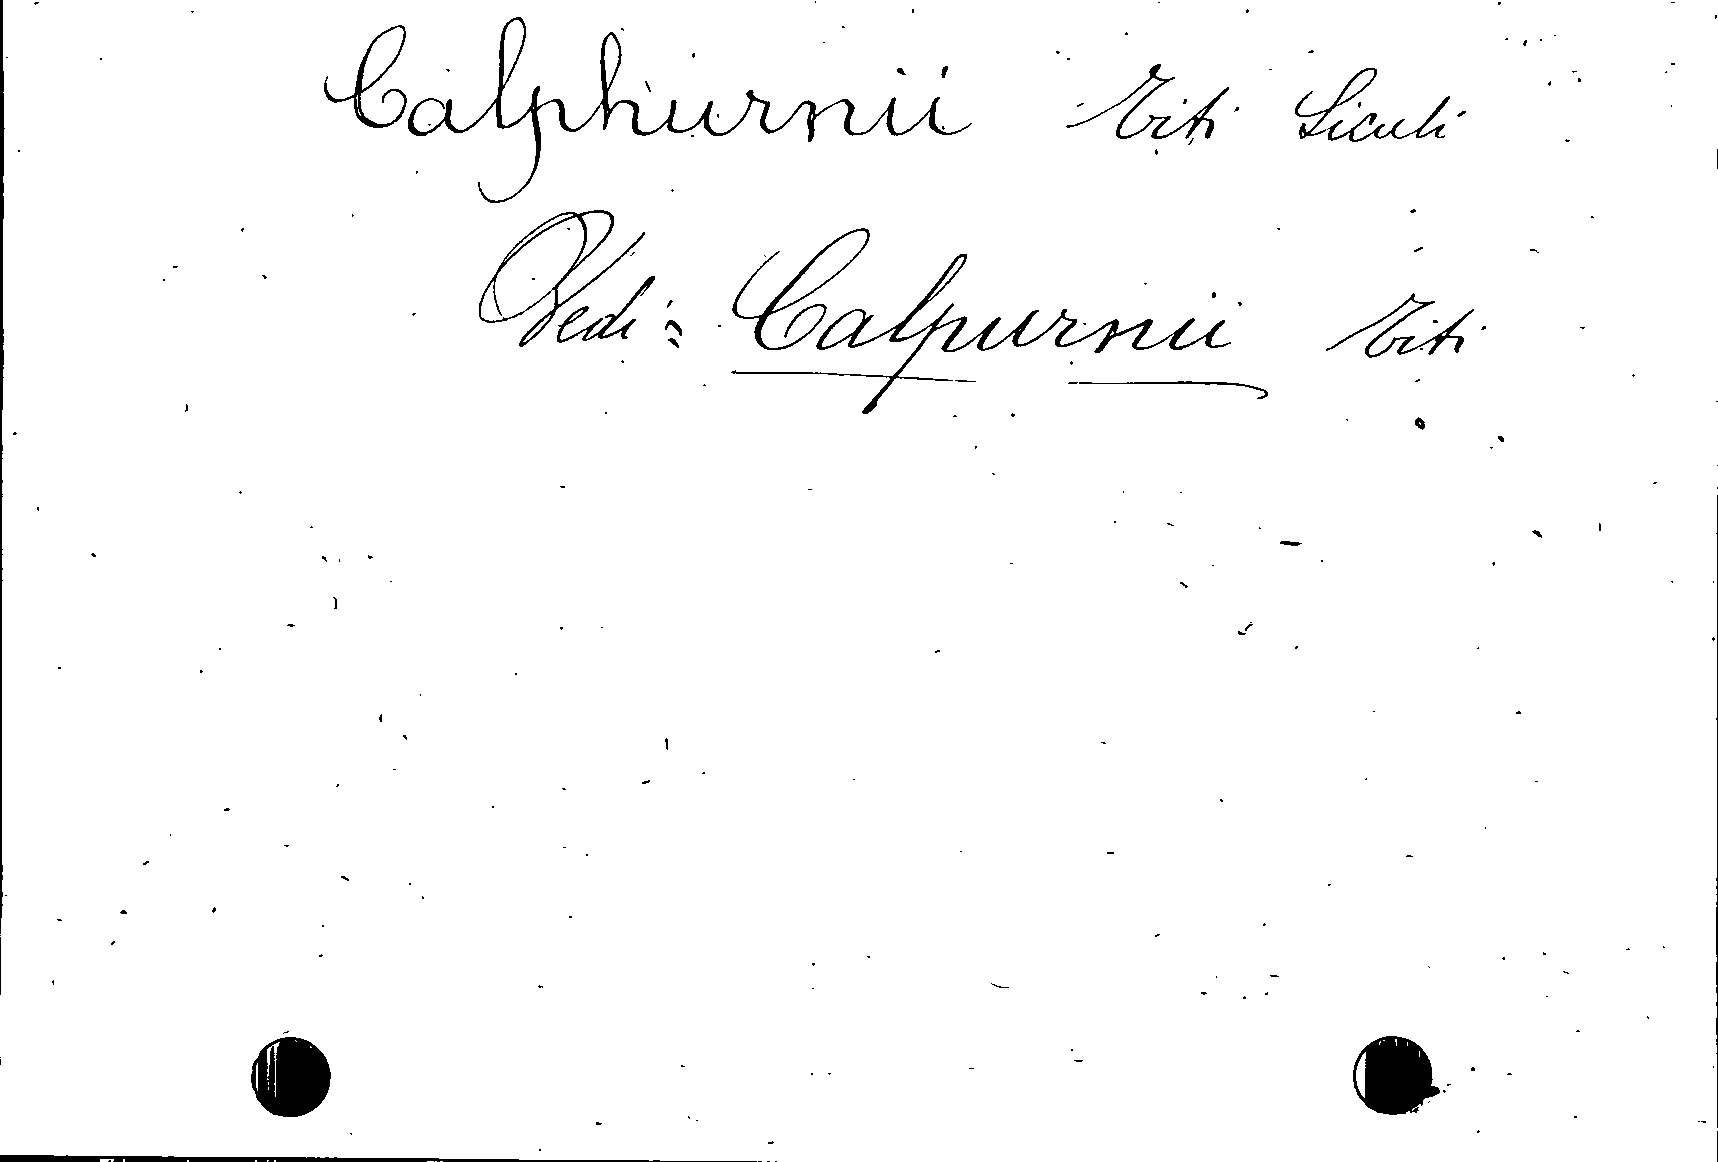 Calphurnii Titi Siculi
Vedi: Calpurnii Titi